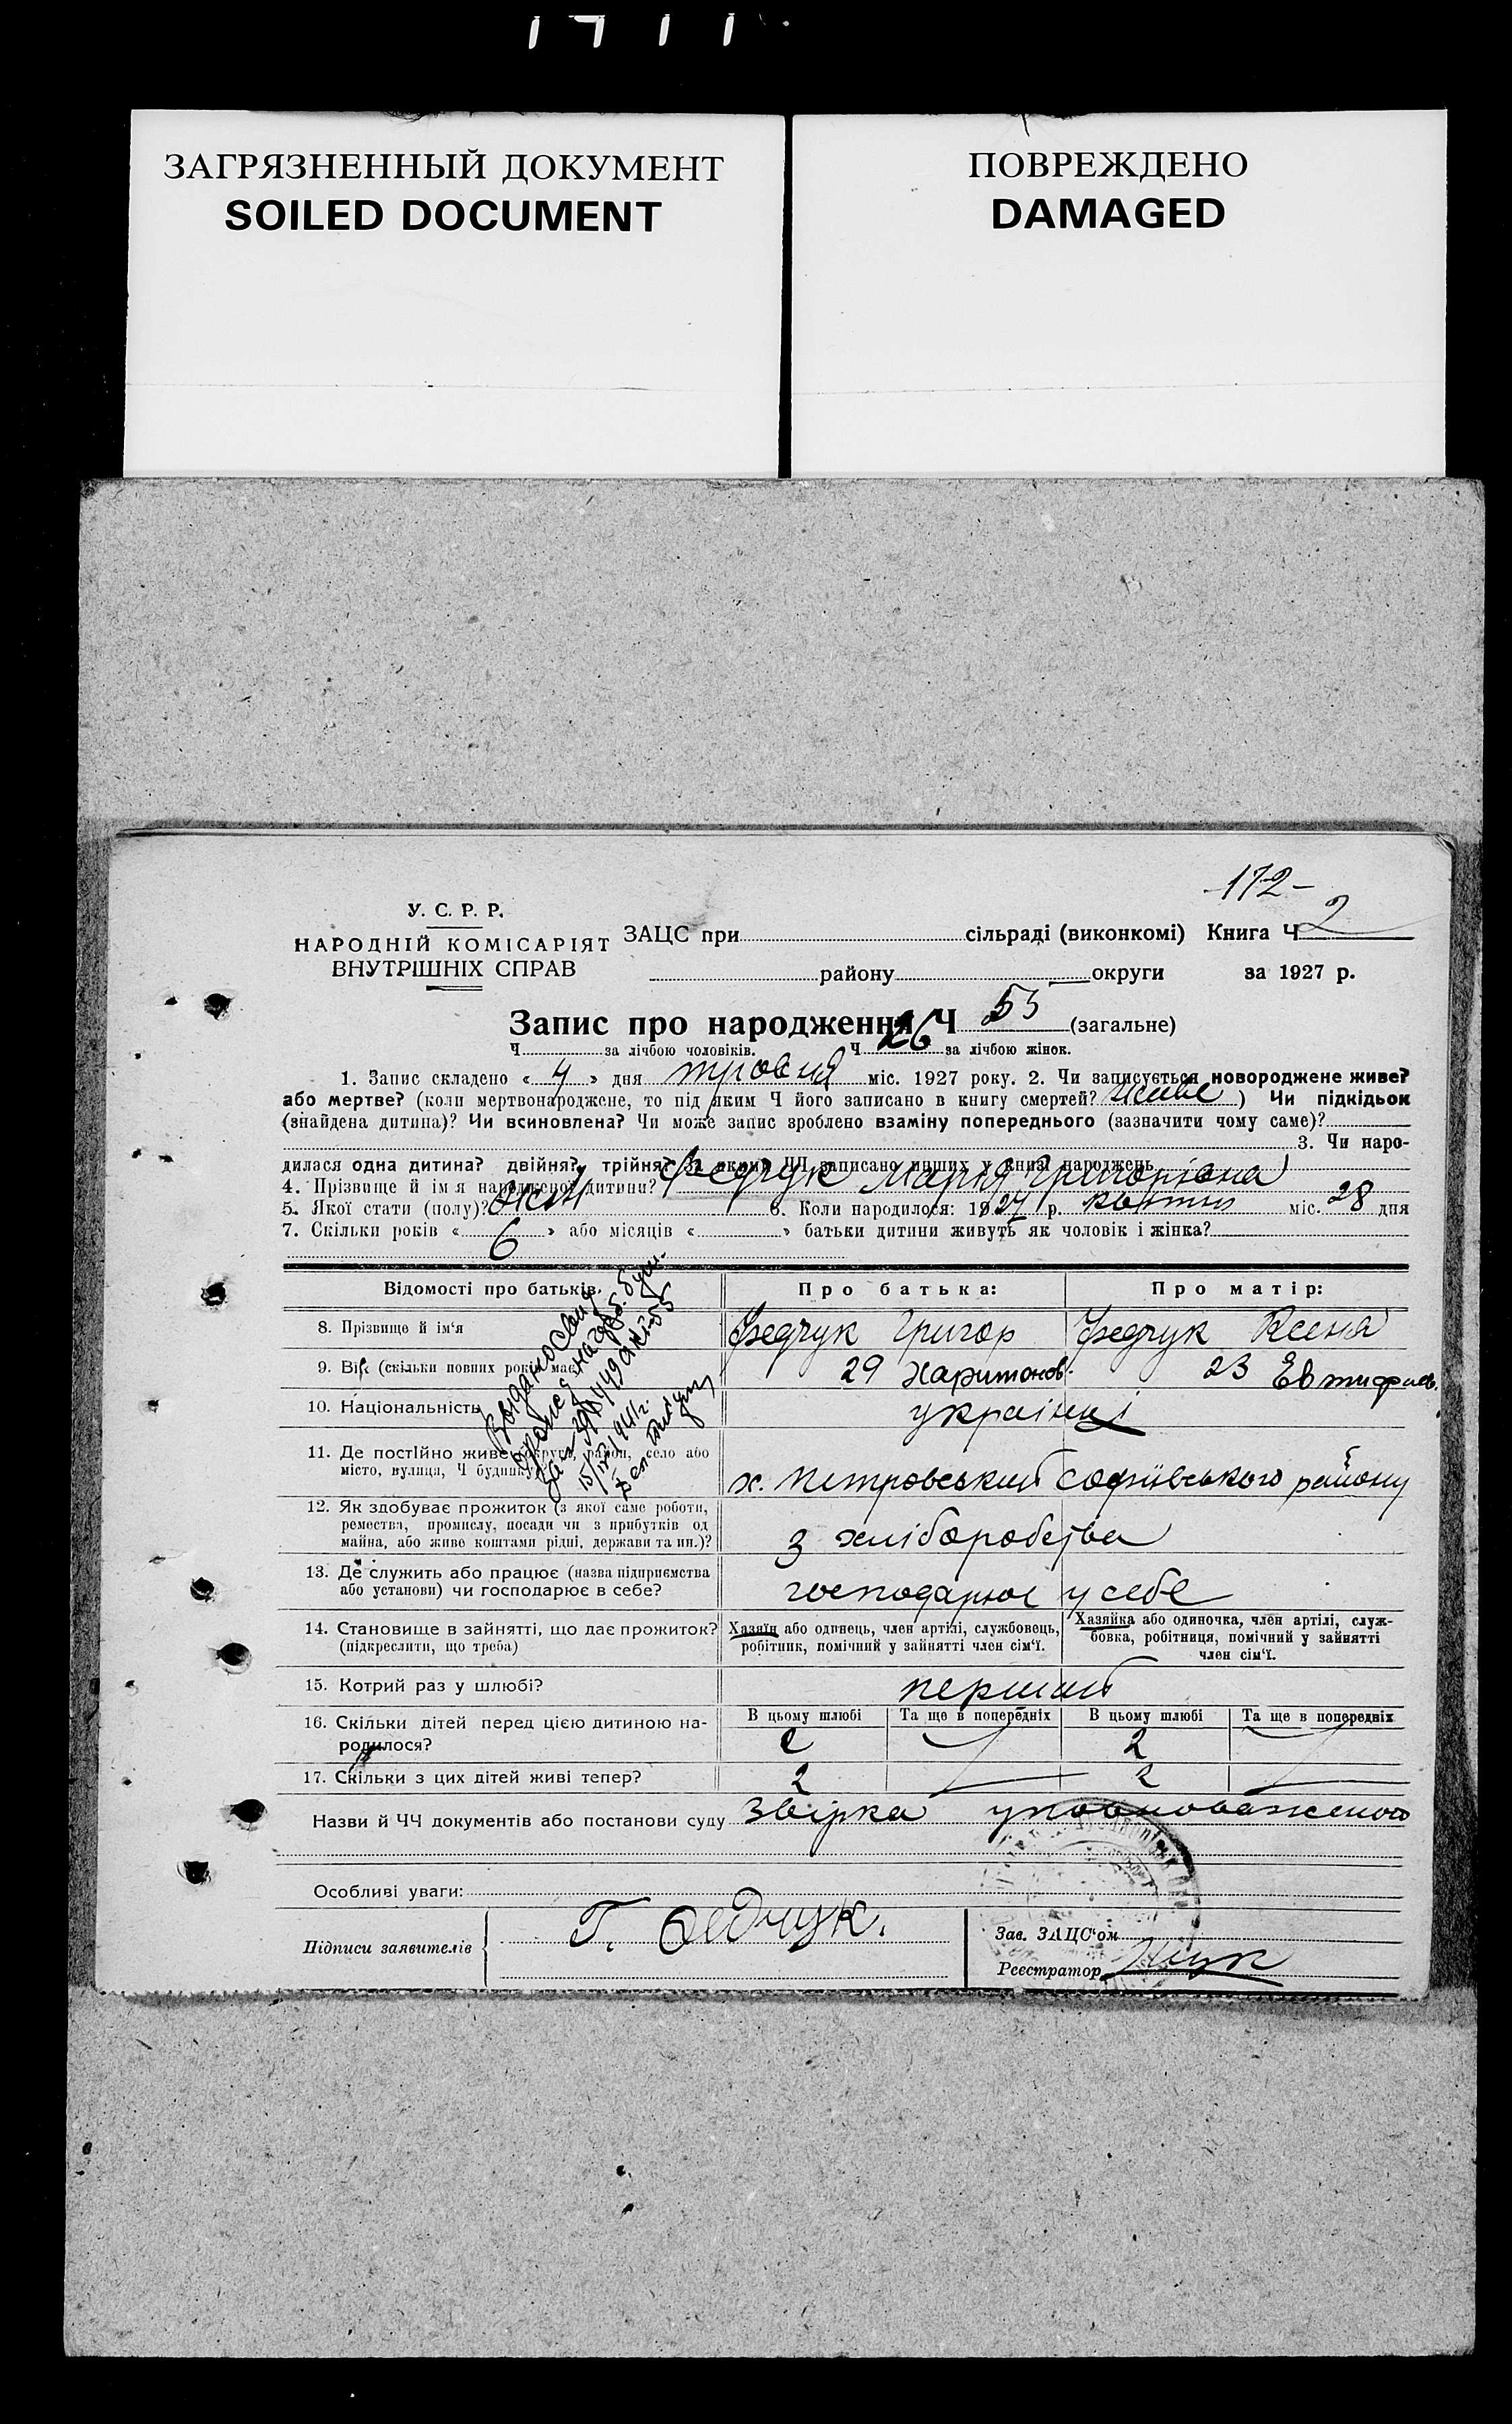 ЗАГРЯЗНЕННЫЙ ДОКУМЕНТ
SOILED DOCUMENT
ПОВРЕЖДЕНО
DAMAGED
-172-
У. С. Р. Р.
НАРОДНІЙ КОМІСАРІЯТ
ВНУТРІШНІХ СПРАВ
ЗАЦС при сільраді (виконкомі) Книга Ч 2
району округи за 1927 р.
Запис про народження Ч 55 (загальне)
Ч за лічбою чоловіків. Ч 26 за лічбою жінок.
1. Запис складено « 4 » дня травня міс. 1927 року. 2. Чи записується новороджене живе?
або мертве? (коли мертвонароджене, то під яким Ч його записано в книгу смертей? живе ) Чи підкідьок
(знайдена дитина)? Чи всиновлена? Чи може запис зроблено взаміну попереднього (зазначити чому саме)?
3. Чи наро-
дилася одна дитина? двійня? трійня? За якими ЧЧ записано инших у книзі народжень
4. Прізвище й імя народженої дитини? Федчук Марія Григорівна
5. Якої стати (полу)? жін 6. Коли народилося: 1927 р. квітня міс. 28 дня
7. Скільки років « 6 » або місяців « » батьки дитини живуть як чоловік і жінка?
Відомості про батьків. Про батька: Про матір:
8. Прізвище й ім'я Федчук Григор Федчук Ксеня
9. Вік (скільки повних років має) 29 Харитонов. 23 Евтифиев.
10. Національність українці
11. Де постійно живе (округа, район, село або
місто, вулиця, Ч будинку) х. Петровський Софіївського району
12. Як здобуває прожиток (з якої саме роботи,
ремества, промислу, посади чи з прибутків од
майна, або живе коштами рідні, держави та ин.)? З хліборобства
13. Де служить або працює (назва підприємства
або установи) чи господарює в себе? господарює у себе
14. Становище в зайнятті, що дає прожиток?
(підкреслити, що треба)
Хазяїн або одинець, член артілі, службовець,
робітник, помічний у зайнятті член сім'ї.
Хазяйка або одиночка, член артілі, служ-
бовка, робітниця, помічний у зайнятті
член сім'ї.
15. Котрий раз у шлюбі? перший
16. Скільки дітей перед цією дитиною на-
родилося?
В цьому шлюбі Та ще в попередніх В цьому шлюбі Та ще в попередніх
2 2
17. Скільки з цих дітей живі тепер? 2 2
Назви й ЧЧ документів або постанови суду Звірка уповноваженого
Особливі уваги:
Підписи заявителів Г. Федчук.
Зав. ЗАЦС'ом
Реєстратор